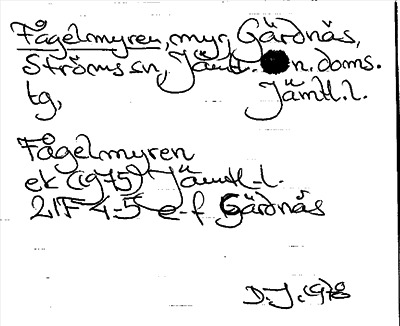 Fågelmyren, myr, Gärdnäs,
Ströms sn, Jämtl. n. doms.
tg, Jämtl.l.
Fågelmyren
ek (1975) Jämtl.l.
21F 4-5 e-f Gärdnäs
D.J. 1978